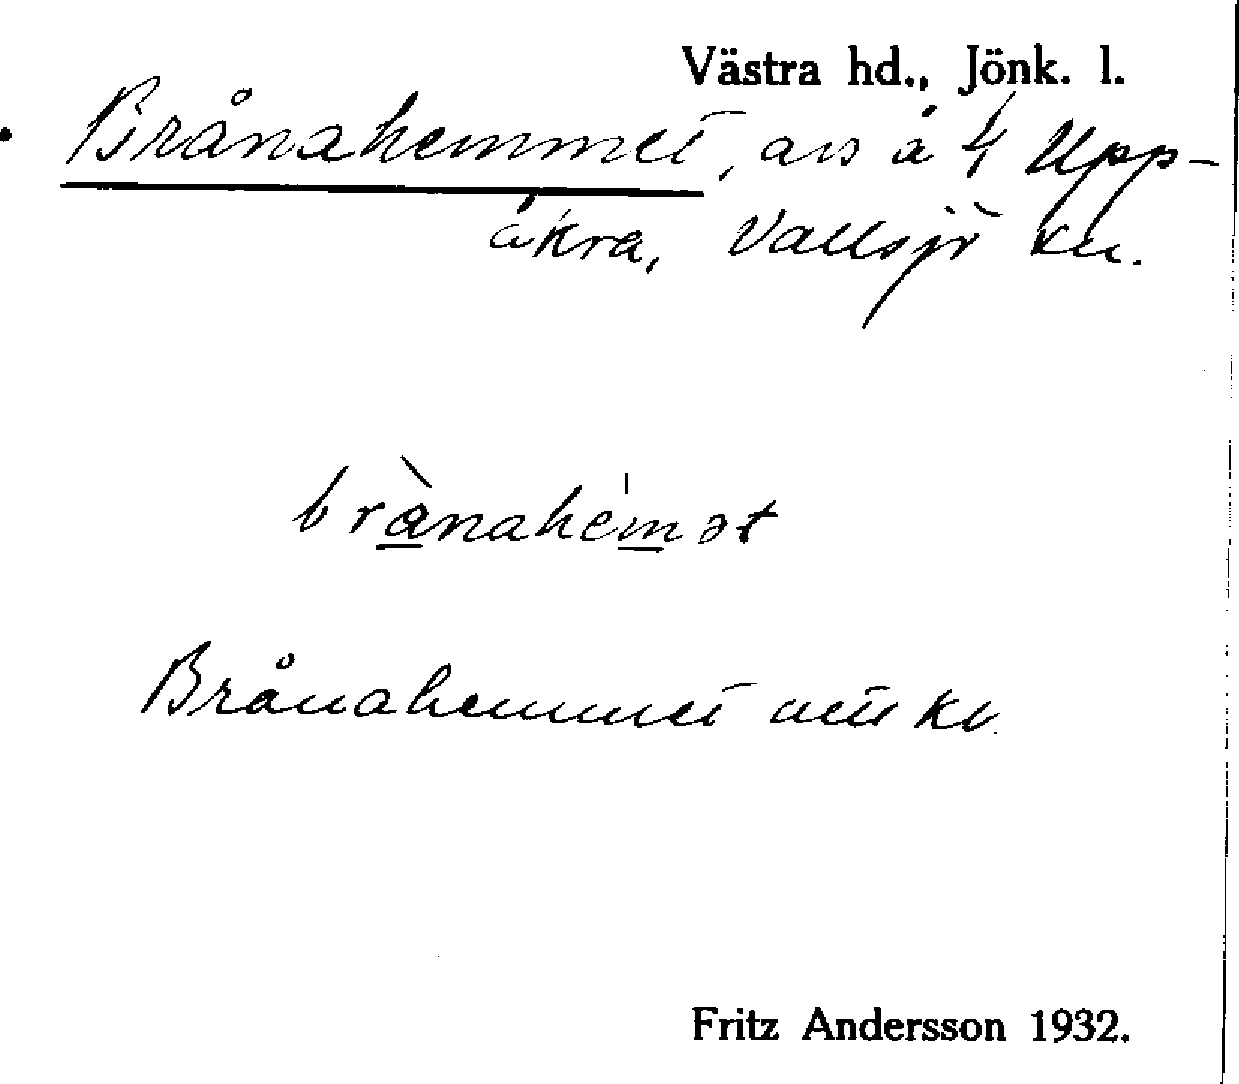 Västra hd., Jönk. l.
Brånahemmet, avs å 4 Upp-
åkra, Vallsjö sn.
brànahemət
Brånahemmet
Fritz Andersson 1932.